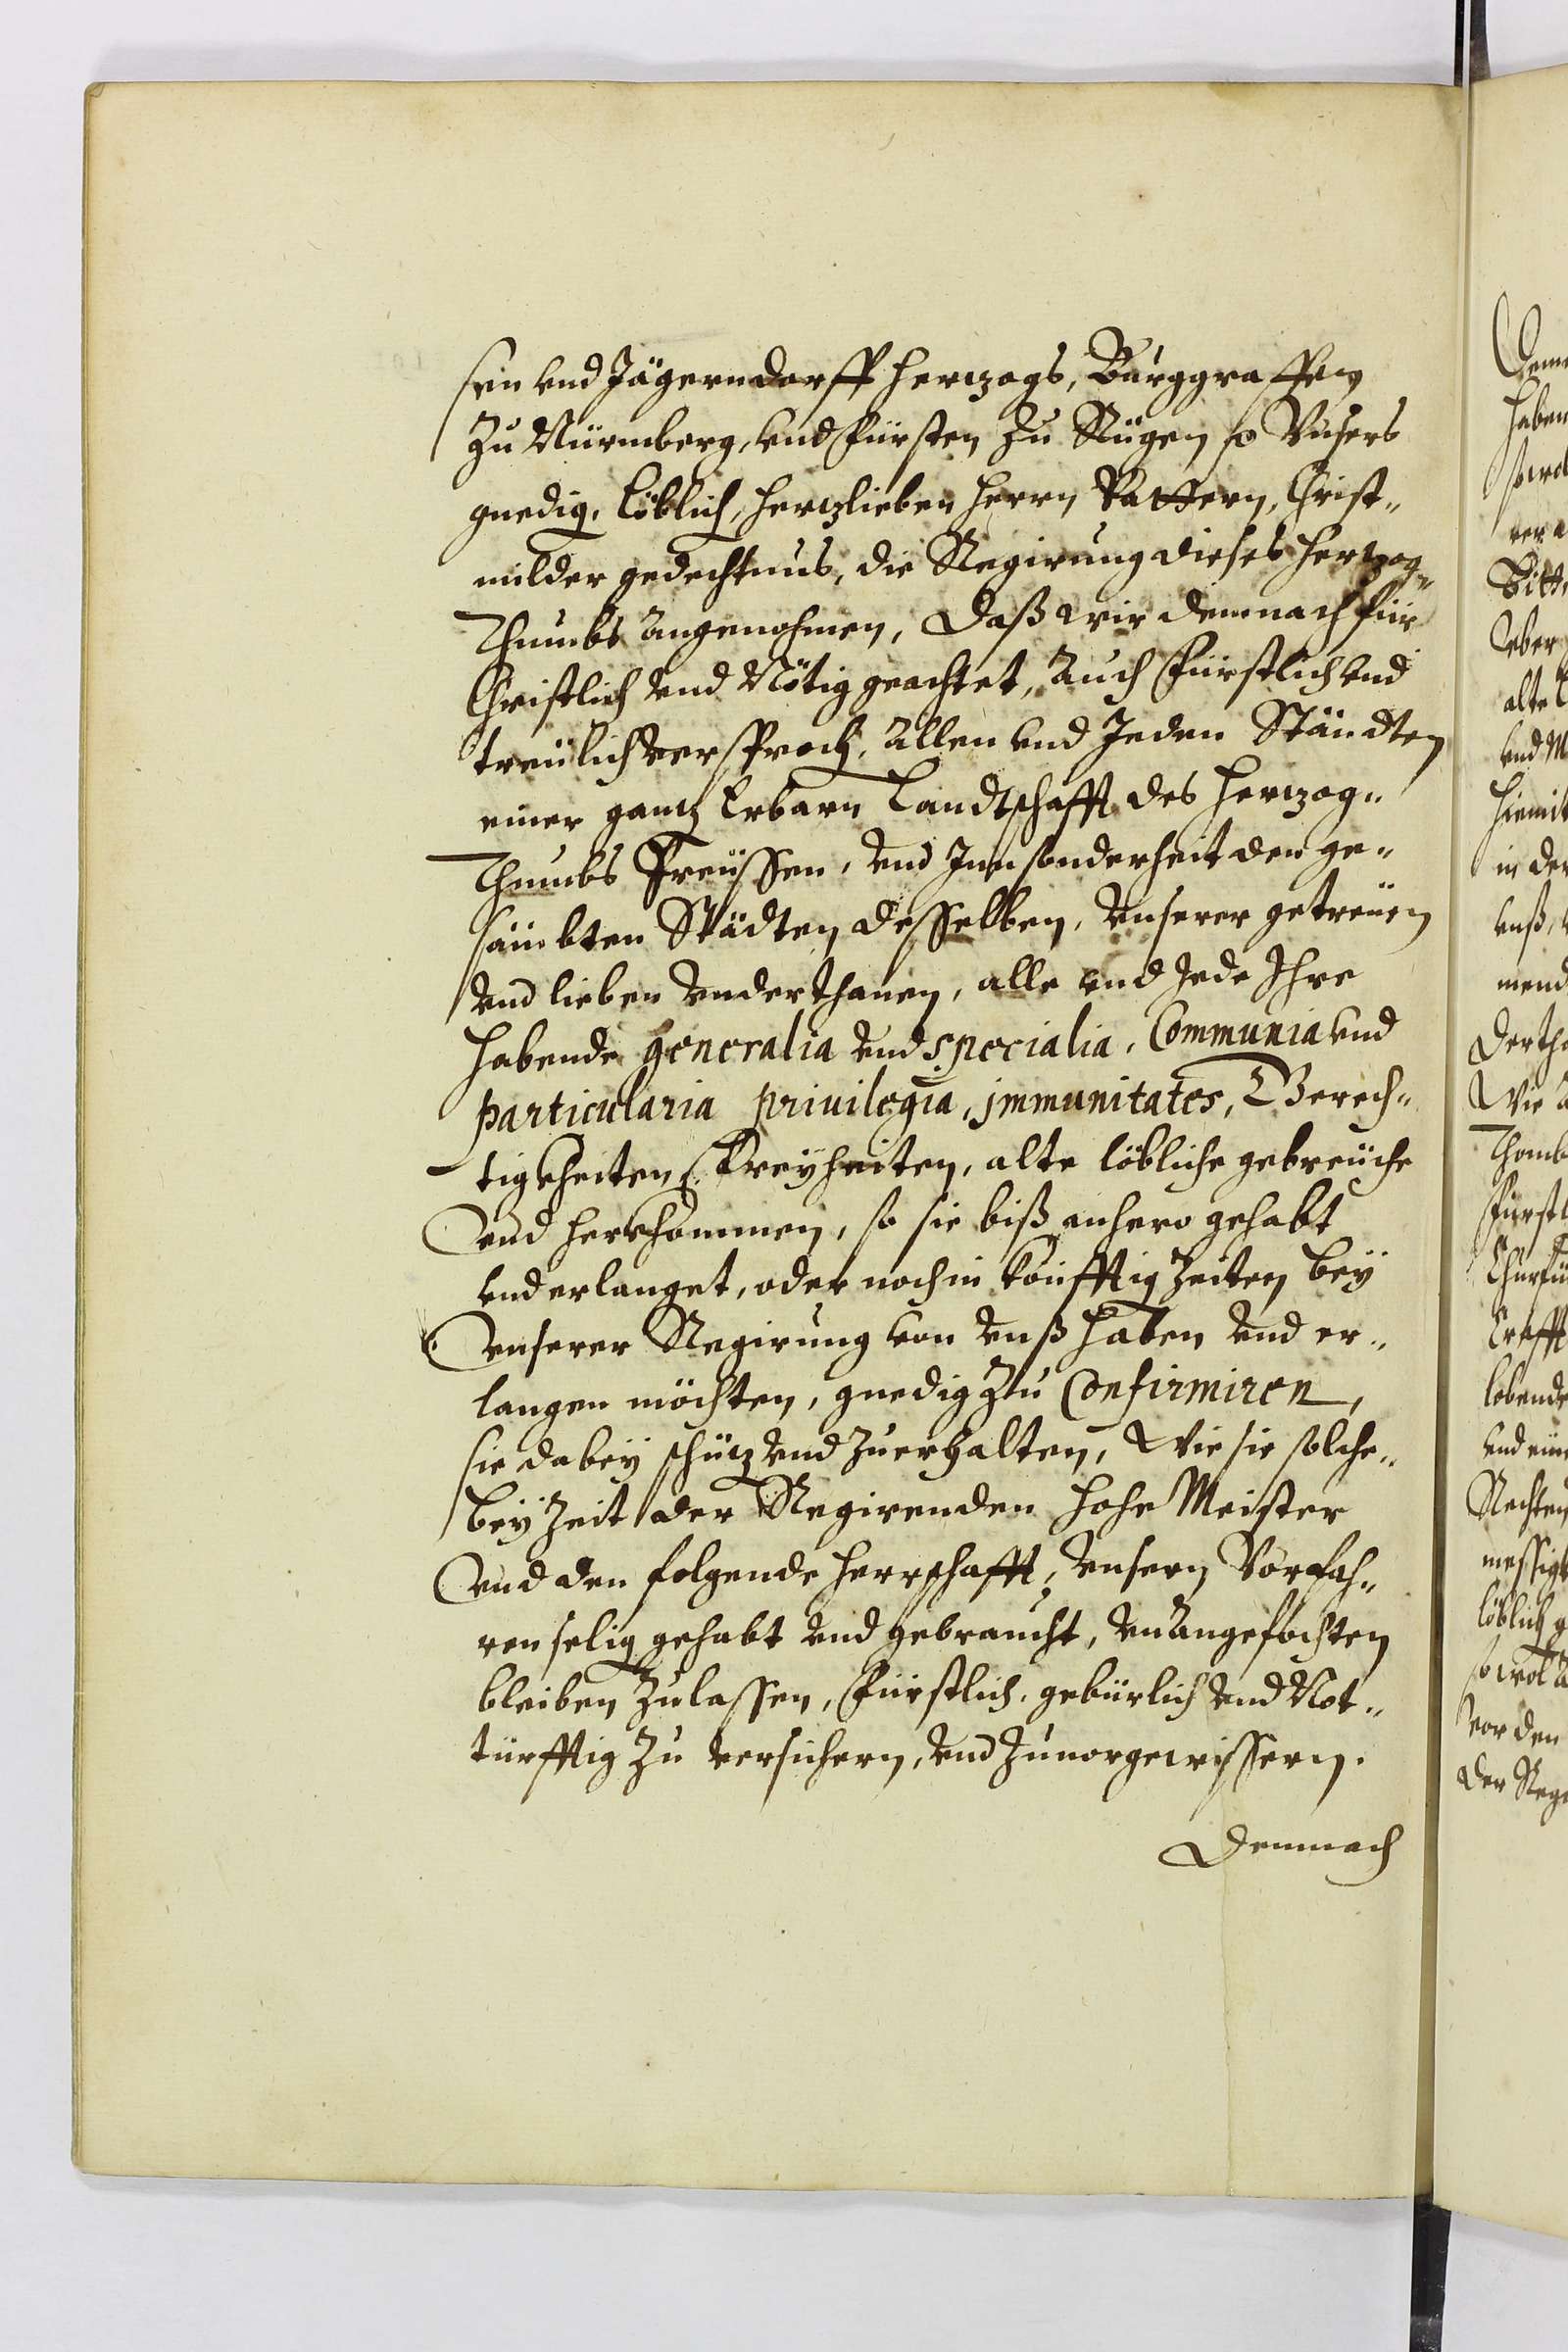 sien vnd Jägerndorff hertzogs, Burggraffen
zu Nürmberg, vnd fürsten zu Rügen so Vnsers
gnedig. löblich, hertzlieben herrn Vattern, Christ„
milder gedechtnus, die Regirung dieses Hertzog„
thumbs angenohmen, daß wir demnach für
Christlich vnd Nötig geachtet, auch fürstlich vnd
treulich versproch. allen vnd Jeden Ständten
einer gantz Erbarn Landtschafft des Hertzog„
thumbs Preussen, vnd Innsonderheit den ge„
sämbten Städten desselben, vnserer getreuen
vnd lieben vnderthanen, alle vnd Jede Ihre
habende generalia vnd specialia, Communia vnd
particularia priuilegia, immunitates, Gerech„
tigkheiten, Freyheiten, alte löbliche gebreuche
vnd herkhommen, so sie biß anhero gehabt
vnd erlanget, oder noch in konfftig Zeiten bey
vnserer Regirung von vnß haben vnd er„
langen möchten, gnedig zu Confirmiren,
sie dabey schütz vnd zuerhalten, Wie sie solche„
bey Zeit der Regirenden Hohe Meister
vnd den folgende herrschafft, vnsern Vorfah„
ren selig gehabt vnd gebraucht, vnangefochten
bleiben zulassen, fürstlich, gebürlich vnd Not„
türfftig zu versichern, vnd zuuorgewissern.
Demnach